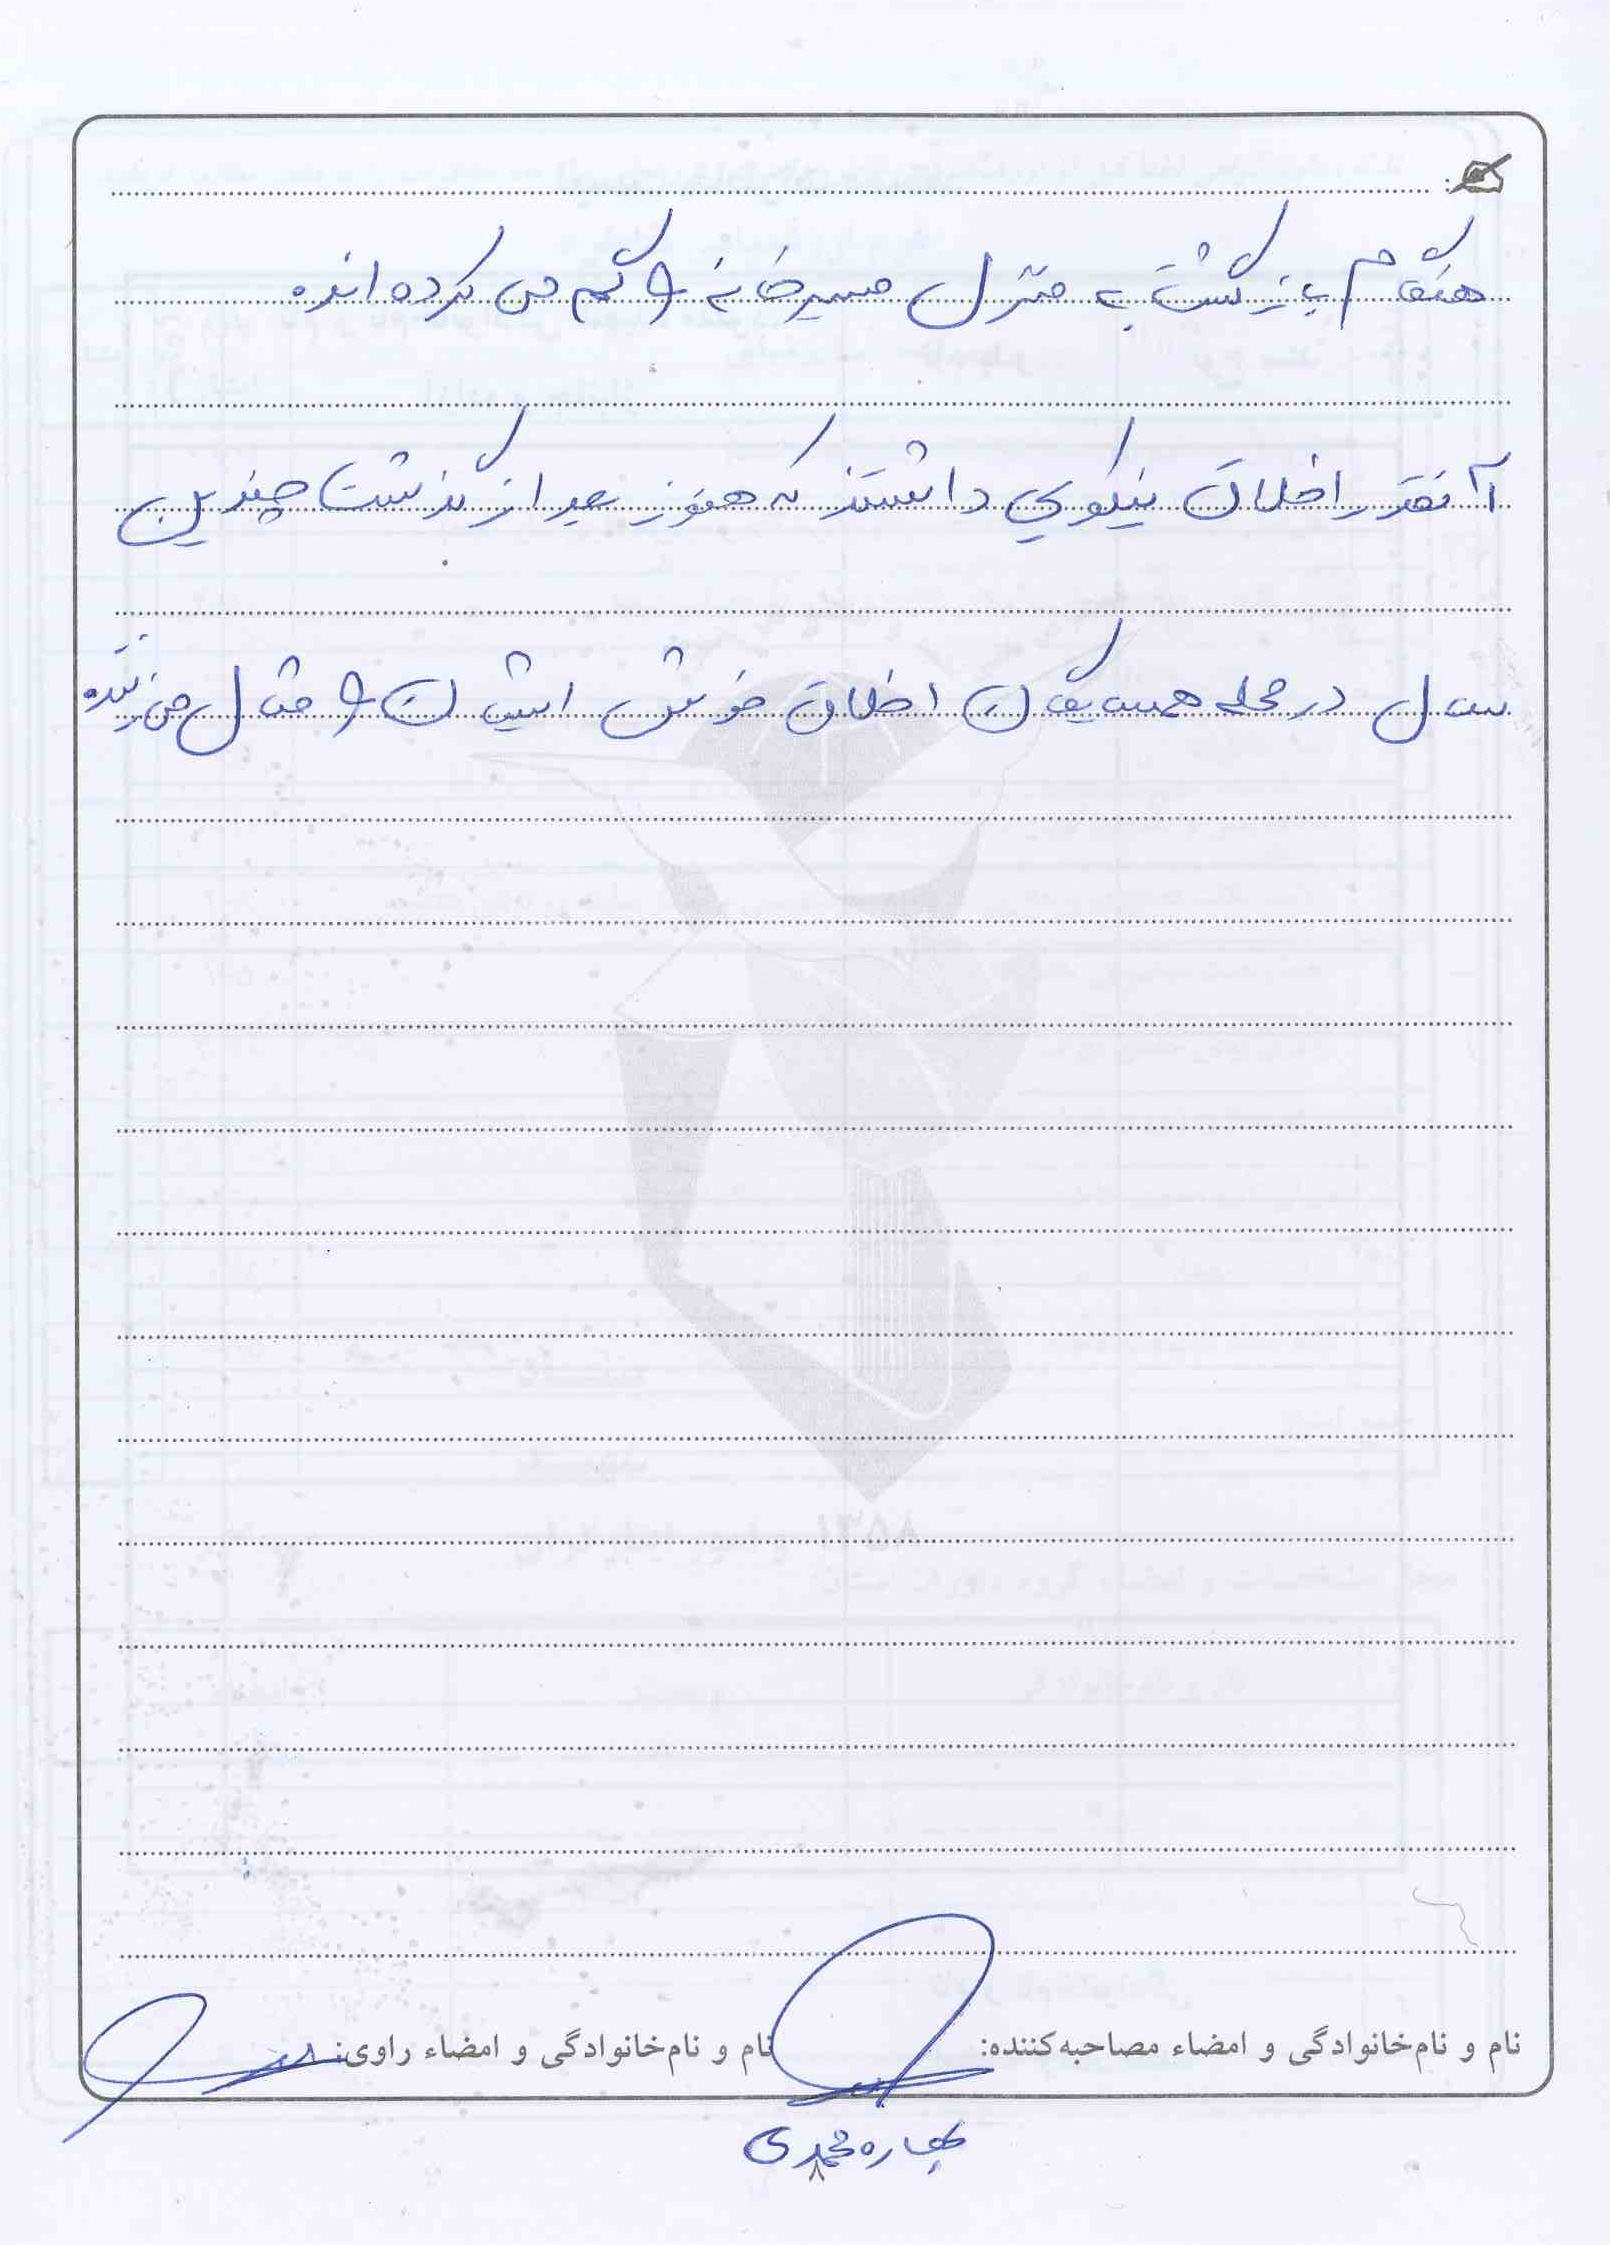 هنگام بازگشت به منزل مسیر خانه را گم می کرده اند.
آنقدر اخلاق نیکویی داشتند که هنوز بعد از گذشت چندین
سال در محله همسایگان اخلاق خوش ایشان را مثال می زنند.
نام و نام‌خانوادگی و امضاء مصاحبه‌کننده: نام و نام‌خانوادگی و امضاء راوی:
بهاره محمدی
۸